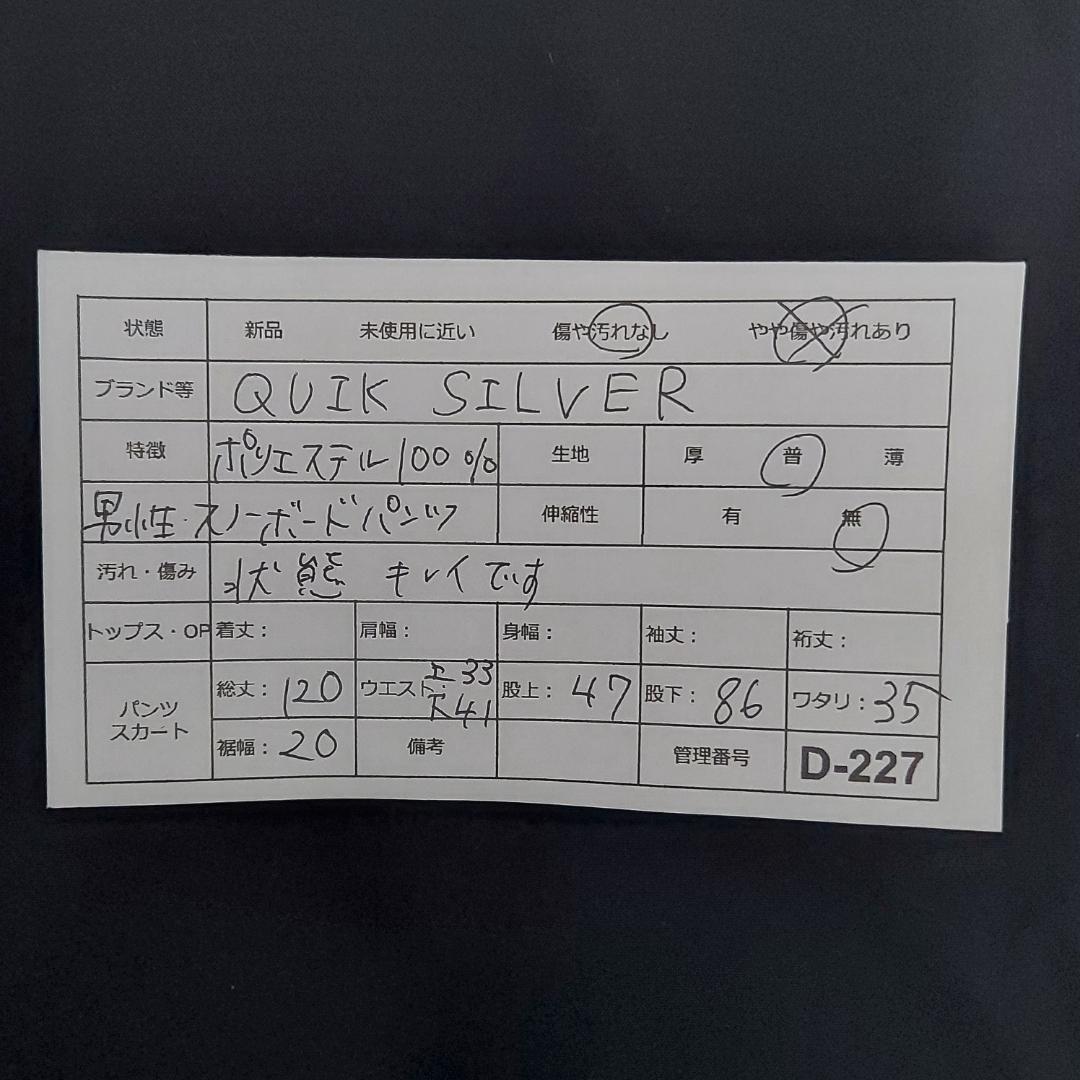 状態 新品 未使用に近い 傷や汚れなし やや傷や汚れあり
ブランド等 QUIK SILVER
特徴 ポリエステル100% 生地 厚 普 薄
男性・スノーボードパンツ 伸縮性 有 無
汚れ・傷み 状態 キレイです
トップス・OP 着丈: 肩幅: 身幅: 袖丈: 裄丈:
パンツ スカート 総丈:120 ウエスト: 上33 下41 股上:47 股下:86 ワタリ:35
裾幅:20 備考 管理番号 D-227